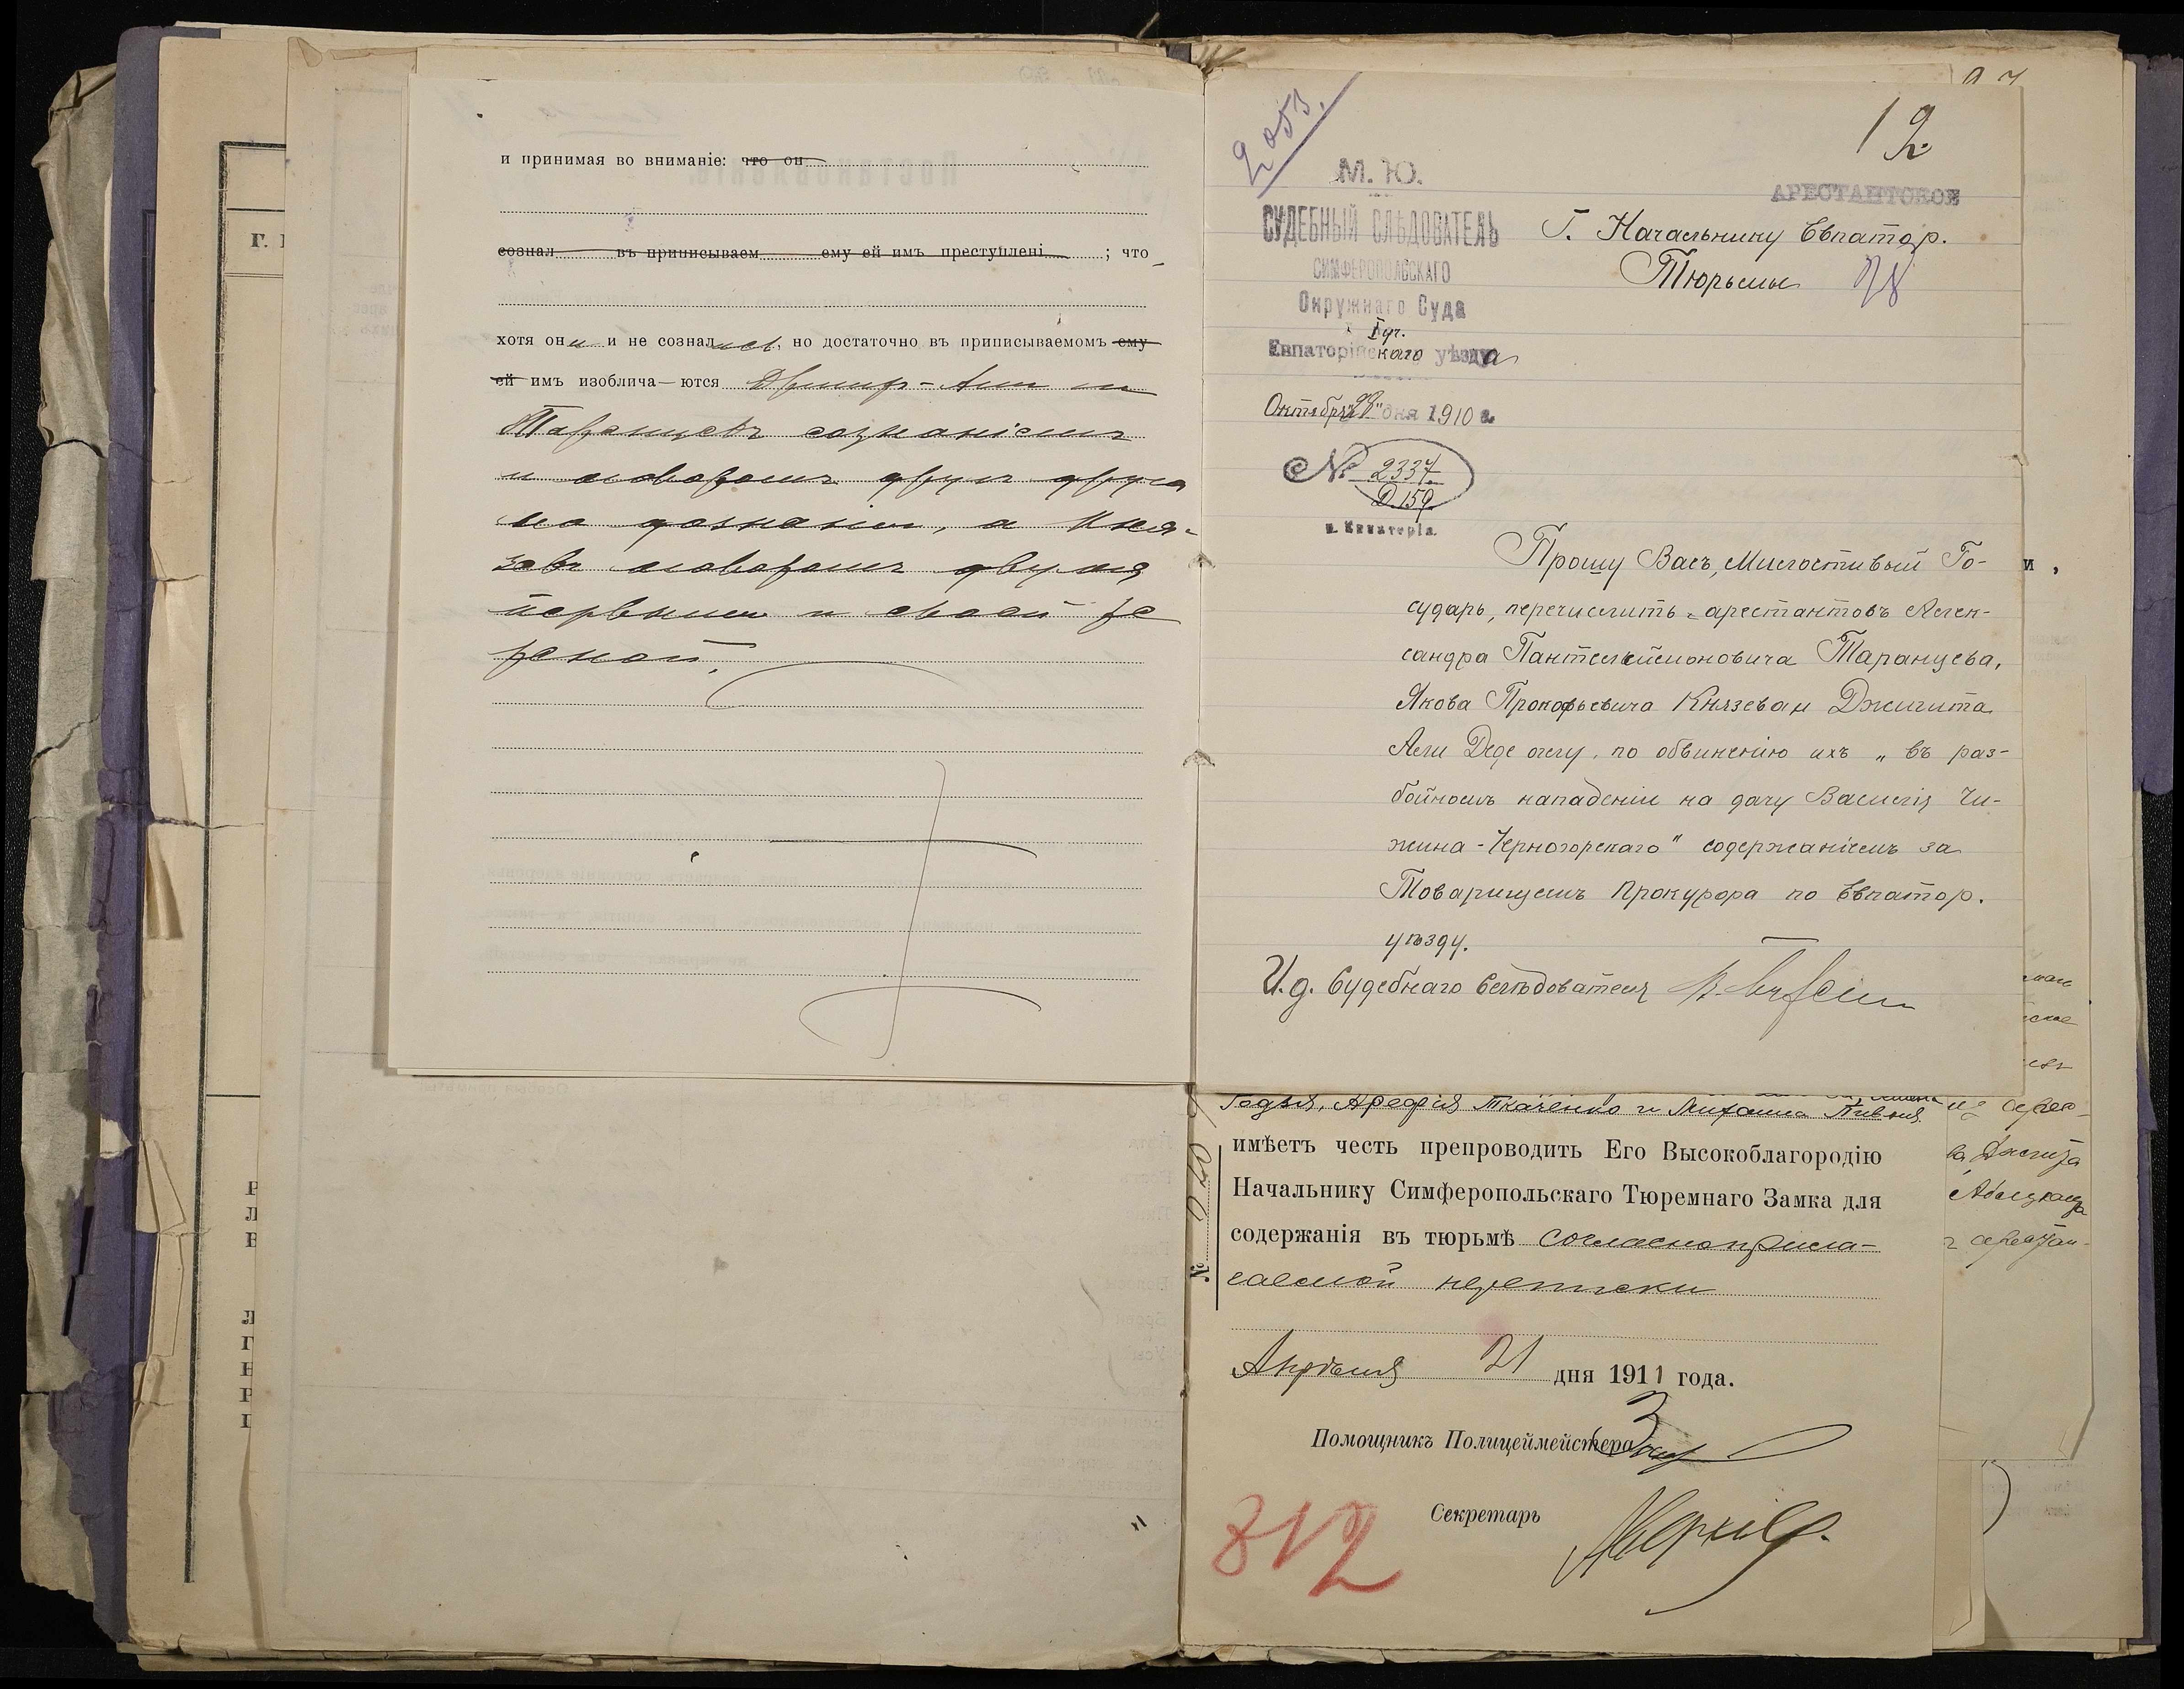 и принимая во вниманіе: что он
сознал въ приписываем ему ей имъ преступлені ; что
хотя они и не сознались, но достаточно въ приписываемомъ ему
ей имъ изоблича—ются
Таранцевъ сознаніемъ
и оговоромъ другъ друга
на дознаніи, а Кня-
зевъ оговоромъ двумя
первыми и своей
2053.
12
М. Ю.
СУДЕБНЫЙ СЛѢДОВАТЕЛЬ
СИМФЕРОПОЛЬСКАГО
Окружнаго Суда
I уч.
Евпаторійскаго уѣзда
Октября "29" дня 1910 г.
№ 2337
Д. 159.
г. Евпаторія.
АРЕСТАНТСКОЕ
Г. Начальнику Евпатор.
Тюрьмы
Прошу Васъ, Милостивый Го-
сударь, перечислить арестантовъ Алек-
сандра Пантелеймоновича Таранцева,
Якова Прокофьевича Князева и Джигита
Али Деде оглу, по обвиненію ихъ „въ раз-
бойномъ нападеніи на дачу Василія Чи-
жина-Черногорскаго" содержаніемъ за
Товарищемъ Прокурора по Евпатор.
уѣзду.
И.д. Судебнаго Слѣдователя
Арефія Ткаченко и Михаила
имѣетъ честь препроводить Его Высокоблагородію
Начальнику Симферопольскаго Тюремнаго Замка для
содержанія въ тюрьмѣ согласно прила-
гаемой переписки
Апрѣля 21 дня 1911 года.
Помощникъ Полицеймейстера
Секретарь
812
№